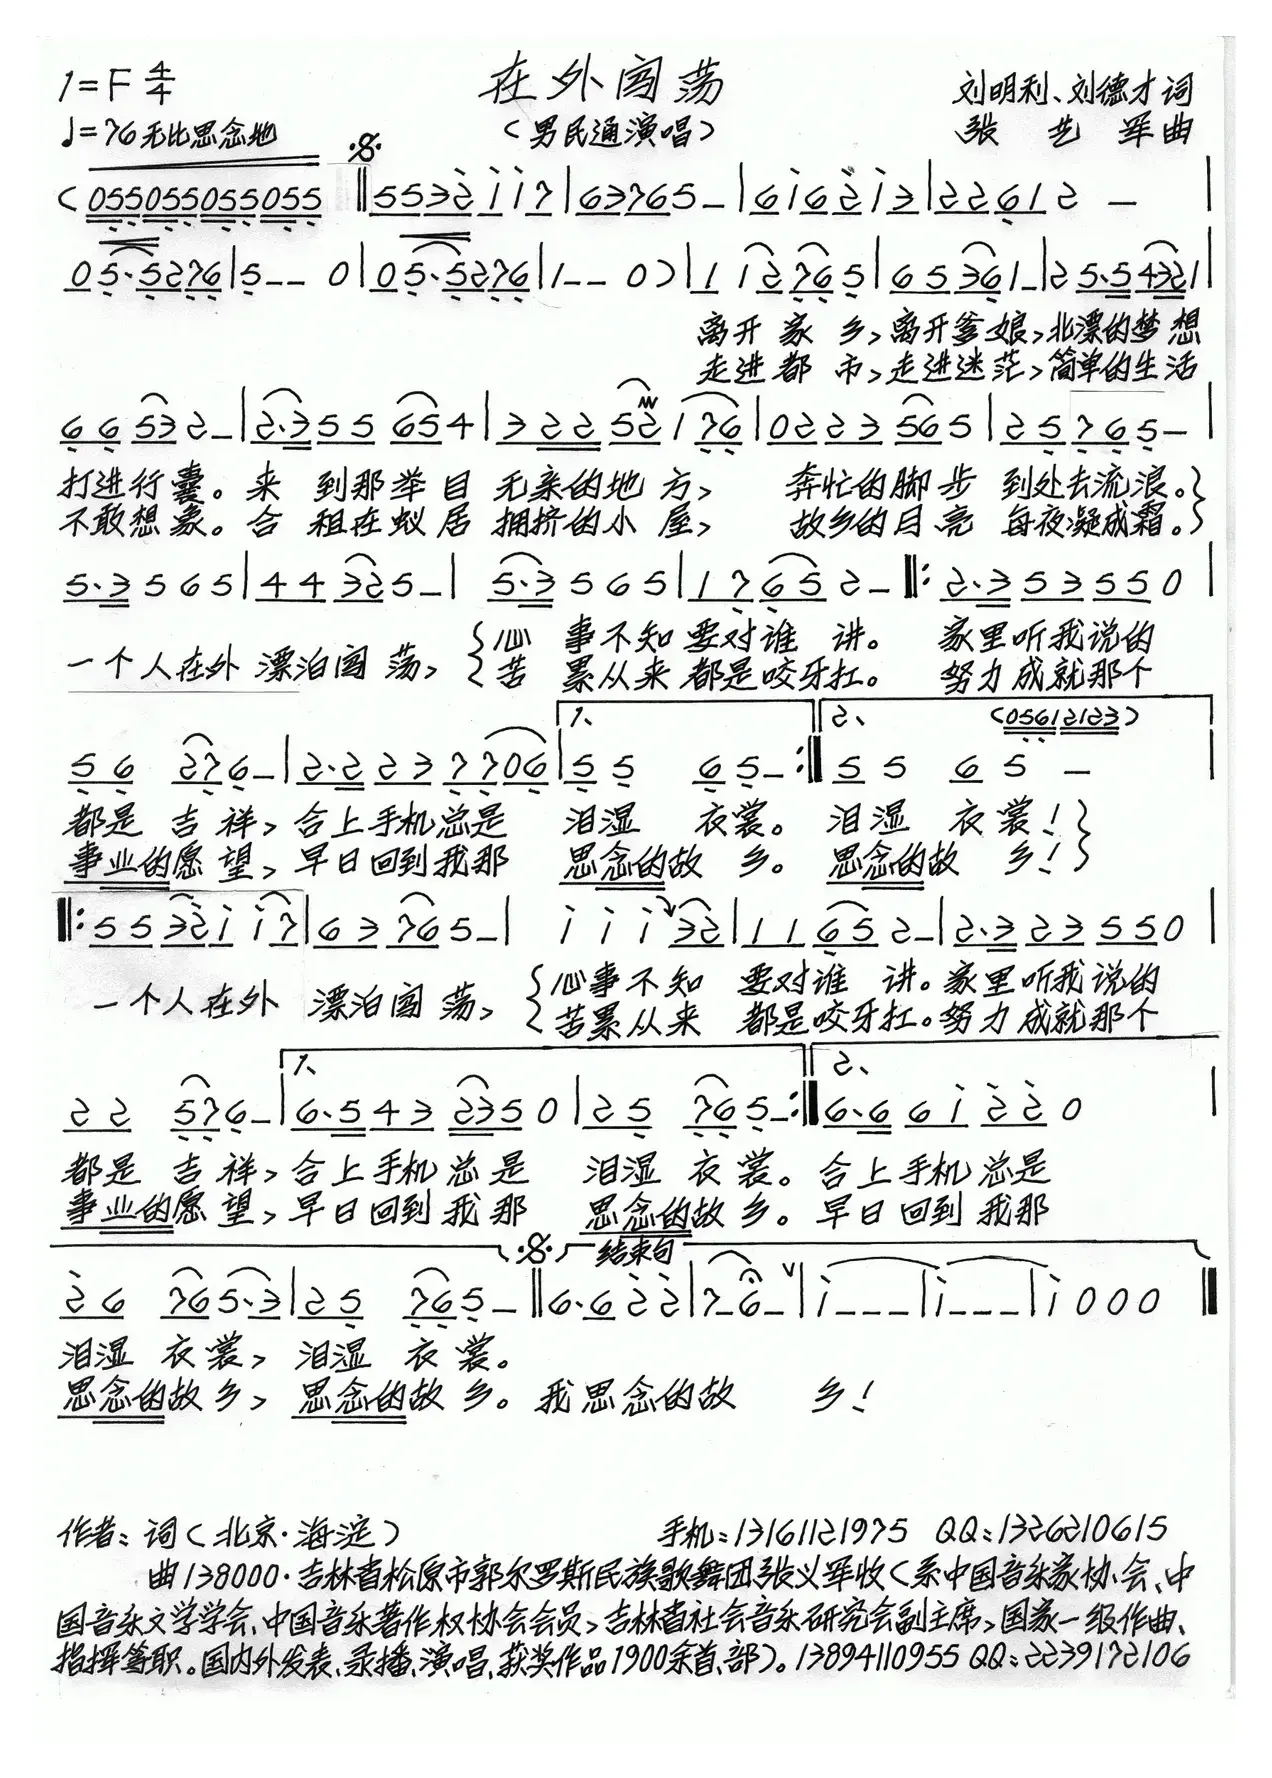 在外闯荡
1=F 4/4
刘明利、刘德才词
♩=76 无比思念地
（男民通演唱）
张艺军曲
(055055055055 ‖5532i i7|63765–|6i62i3|22612 –|
05·5276|5––0|05·5276|1––0)|1 12765|65361–|25·54321|
离开家乡，离开爹娘，北漂的梦想
走进都市，走进迷茫，简单的生活
66532–|2·355 654|32252176|0223565|25765–|
打进行囊。来到那举目无亲的地方，奔忙的脚步到处去流浪。
不敢想象。合租在蚁居拥挤的小屋，故乡的月亮每夜凝成霜。
5·3565|44325–|5·3565|17652–‖:2·353550|
心事不知要对谁讲。家里听我说的
一个人在外漂泊闯荡，
苦累从来都是咬牙扛。努力成就那个
1、 2、 (05612123)
56 276–|2·2237706|55 65–:‖55 65 –
都是吉祥，合上手机总是泪湿衣裳。泪湿衣裳！
事业的愿望，早日回到我那思念的故乡。思念的故乡！
‖:5532i i7|63765–|i i i32|11652–|2·323550|
心事不知要对谁讲。家里听我说的
一个人在外漂泊闯荡，
苦累从来都是咬牙扛。努力成就那个
1、 2、
22 576–|6·5432350|25 765–:‖6·66i220|
都是吉祥，合上手机总是泪湿衣裳。合上手机总是
事业的愿望，早日回到我那思念的故乡。早日回到我那
结束句
26 765·3|25 765–‖6·622|7–6–|i–––|i–––|i000‖
泪湿衣裳，泪湿衣裳。
思念的故乡，思念的故乡。我思念的故乡！
作者：词（北京·海淀） 手机：13161121975 QQ：1326210615
曲138000·吉林省松原市郭尔罗斯民族歌舞团张义军收（系中国音乐家协会、中
国音乐文学学会、中国音乐著作权协会会员，吉林省社会音乐研究会副主席，国家一级作曲、
指挥等职。国内外发表、录播、演唱、获奖作品1900余首、部）。13894110955 QQ：2239172106